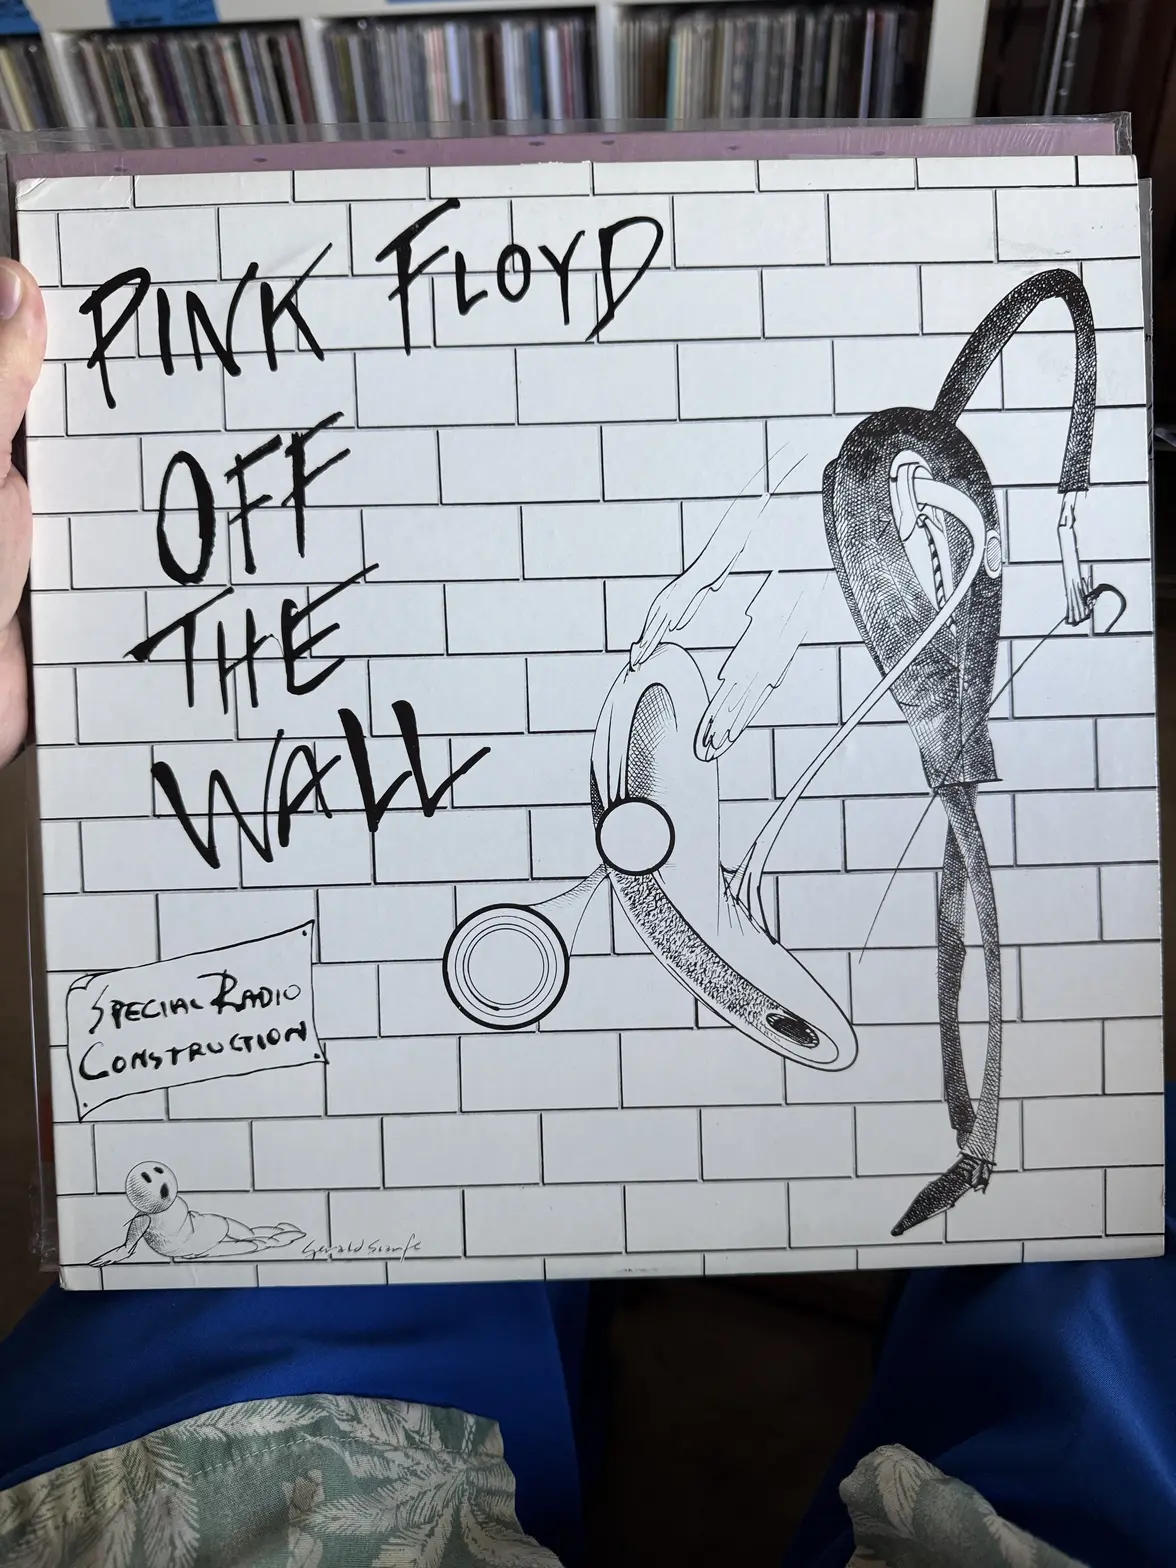 PINK FLOYD
OFF
THE
WALL
SPECIAL RADIO
CONSTRUCTION
Gerald Scarfe